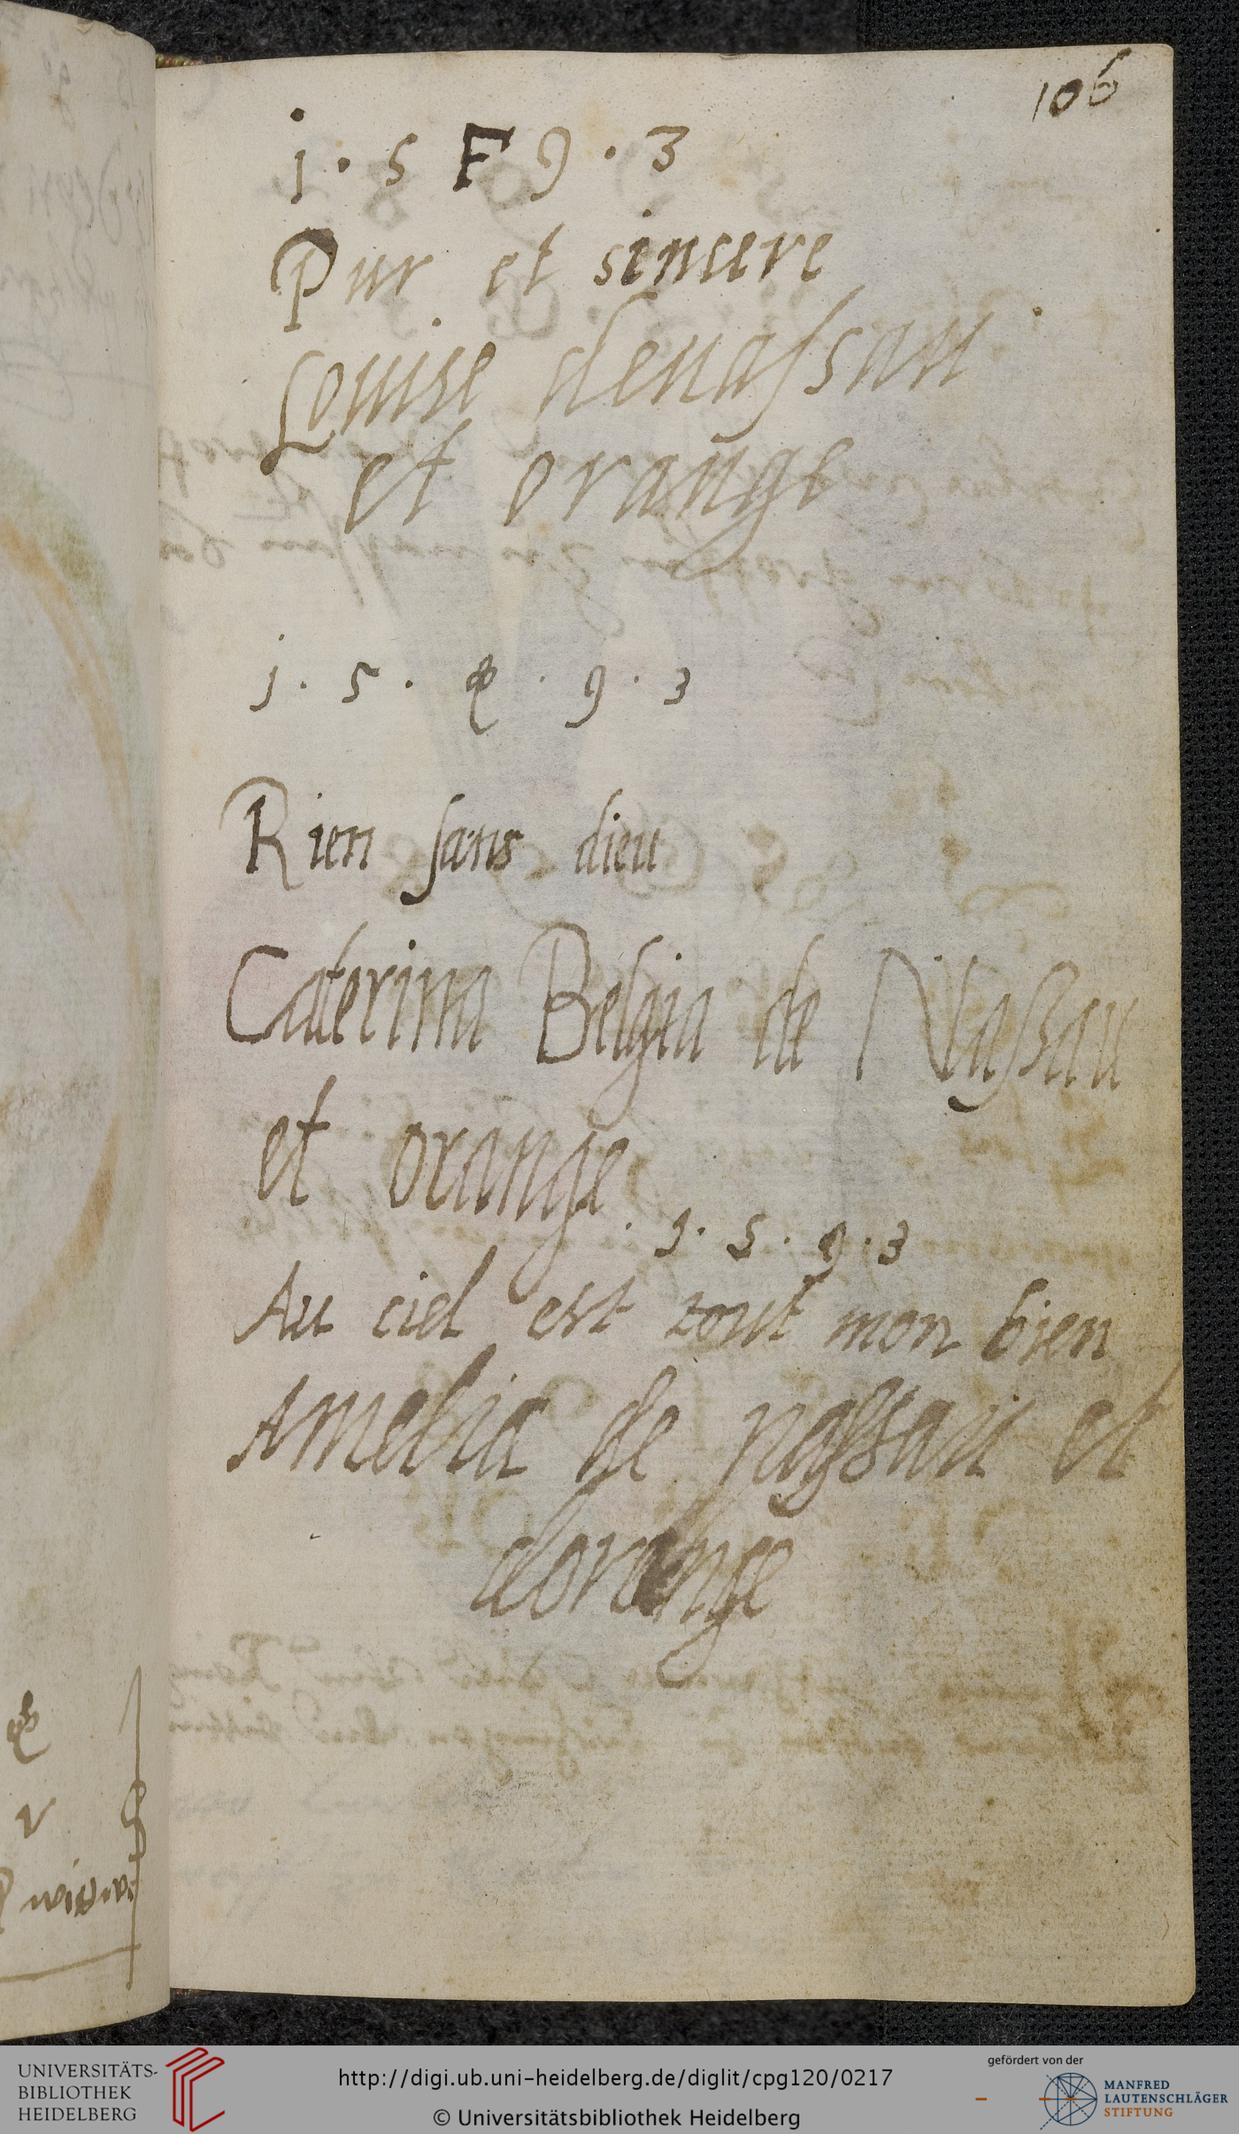 106
1 · 5 F 9 · 3
Pur et sincere
Louise denaſsau
et orange
1 · 5 · 9 · 3
Rien ſans dieu
Caterina Belgia de Naſsau
et orange
1 · 5 · 9 · 3
Au ciel est tout mon bien
Amelia de naſsau et
dorange
UNIVERSITÄTS-
BIBLIOTHEK
HEIDELBERG
http://digi.ub.uni-heidelberg.de/diglit/cpg120/0217
© Universitätsbibliothek Heidelberg
gefördert von der
MANFRED
LAUTENSCHLÄGER
STIFTUNG